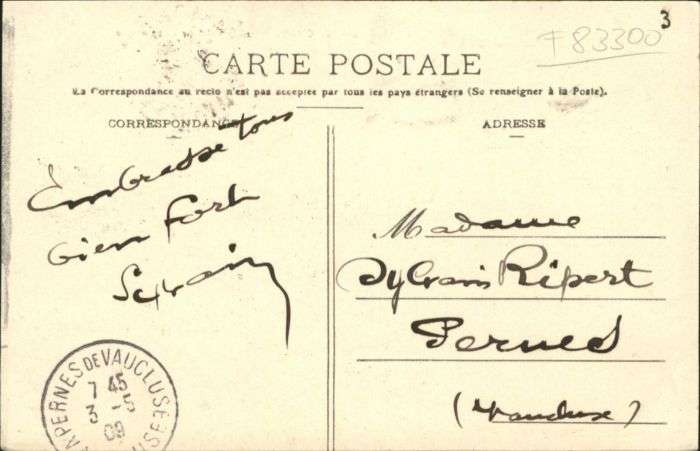 3
F 83300
CARTE POSTALE
La Correspondance au recto n'est pas acceptée par tous les pays étrangers (Se renseigner à la Poste).
CORRESPONDANCE
Embrasse tous
bien fort
Sylvain
ADRESSE
Madame
Sylvain Ripert
Pernes
(Vaucluse)
PERNES DE VAUCLUSE
7 45
3 - 5
09